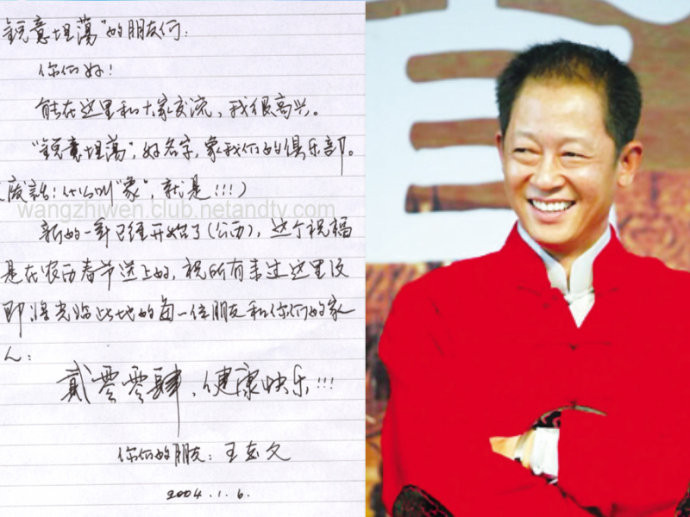 锐意坦荡"的朋友们：
你们好！
能在这里和大家交流，我很高兴。
"锐意坦荡"，好名字，象我们的俱乐部。
废话！什么叫"象"，就是!!!)
wangzhiwen.club.netandtv.com
新的一年已经开始了(公历)，这个祝福
是在农历春节送上的，祝所有来过这里及
即将光临此地的每一位朋友和你们的家
人：
贰零零肆，健康快乐!!!
你们的朋友：王志文
2004.1.6.